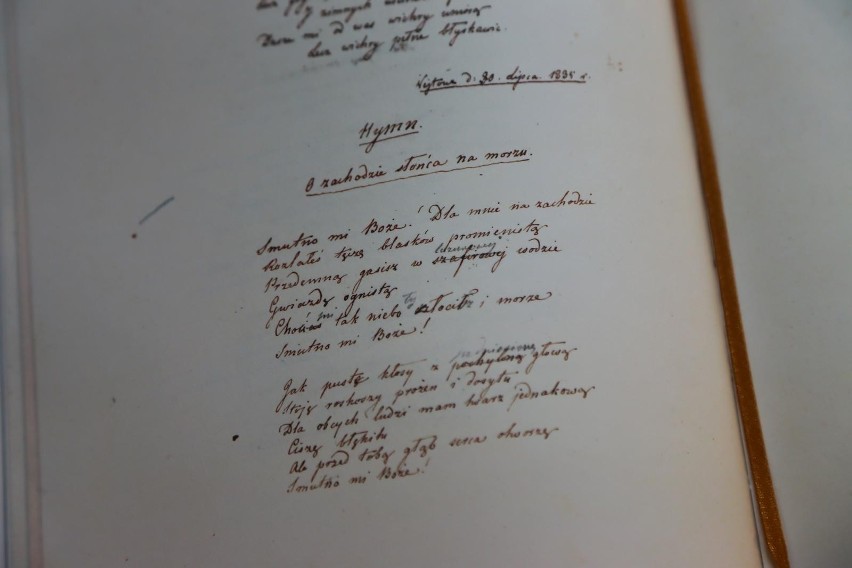 zimnych
Dane mi od was wichry unoszą
Lecz wichry pełne błyskawic.
d. 30. Lipca 1835 r.
Hymn.
O zachodzie słońca na morzu.
Smutno mi Boże! Dla mnie na zachodzie
Rozlałeś tęczę blasków promienistą
lazurowej
Przedemną gasisz w szafirowej wodzie
Gwiazdę ognistą
mi ty
Choć tak niebo złocisz i morze
Smutno mi Boże!
podniesioną
Jak puste kłosy z pochyloną głową
Stoję rozkoszy prożen i dosytu
Dla obcych ludzi mam twarz jednakową
Ciszę błękitu
Ale przed tobą głąb serca otworzę
Smutno mi Boże!